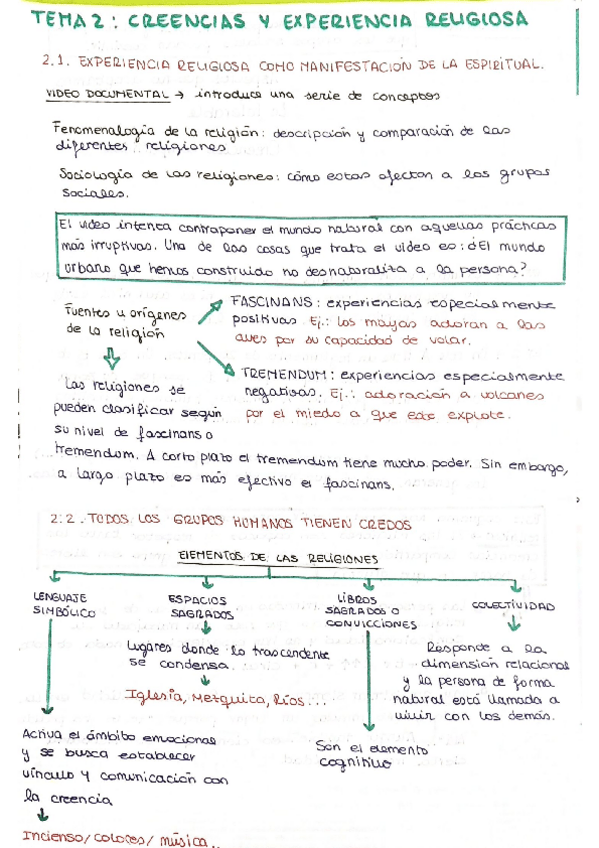 TEMA 2: CREENCIAS Y EXPERIENCIA RELIGIOSA
2.1. EXPERIENCIA RELIGIOSA COMO MANIFESTACIÓN DE LA ESPIRITUAL.
VIDEO DOCUMENTAL → introduce una serie de conceptos
Fenomenología de la religión: descripción y comparación de las
diferentes religiones
Sociología de las religiones: cómo estas afectan a los grupos
sociales.
El video intenta contraponer el mundo natural con aquellas prácticas
más irruptivas. Una de las cosas que trata el video es: ¿El mundo
urbano que hemos construido no desnaturaliza a la persona?
Fuentes u orígenes
de la religión
FASCINANS: experiencias especialmente
positivas Ej.: los mayas adoran a las
aves por su capacidad de volar.
TREMENDUM: experiencias especialmente
negativas. Ej.: adoración a volcanes
por el miedo a que este explote.
Las religiones se
pueden clasificar según
su nivel de fascinans o
tremendum. A corto plazo el tremendum tiene mucho poder. Sin embargo,
a largo plazo es más efectivo el fascinans.
2.2. TODOS LOS GRUPOS HUMANOS TIENEN CREDOS
ELEMENTOS DE LAS RELIGIONES
LENGUAJE
SIMBÓLICO
Activa el ámbito emocional
y se busca establecer
vínculo y comunicación con
la creencia
Incienso/colores/música..
ESPACIOS
SAGRADOS
Lugares donde lo trascendente
se condensa.
Iglesia, Mezquita, Ríos...
LIBROS
SAGRADOS O
CONVICCIONES
Son el elemento
cognitivo
COLECTIVIDAD
Responde a la
dimensión relacional
y la persona de forma
natural está llamada a
vivir con los demás.